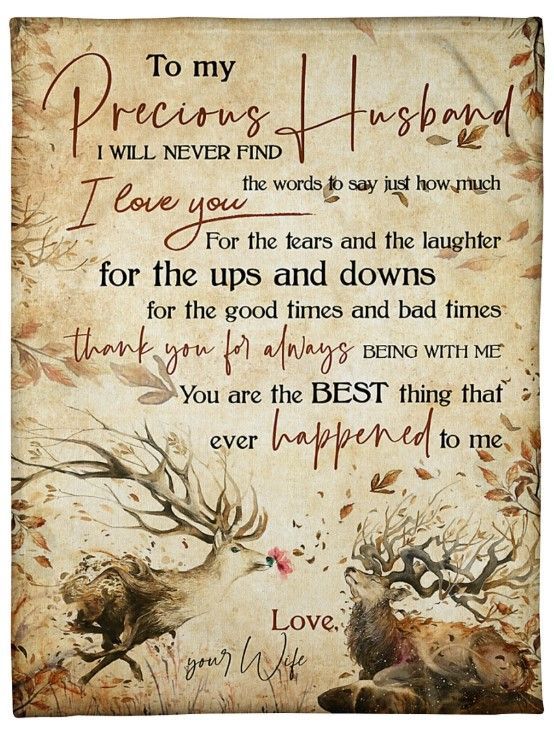 To my
Precious Husband
I WILL NEVER FIND
the words to say just how much
I love you
For the tears and the laughter
for the ups and downs
for the good times and bad times
thank you for always BEING WITH ME
You are the BEST thing that
ever happened to me
Love,
your Wife